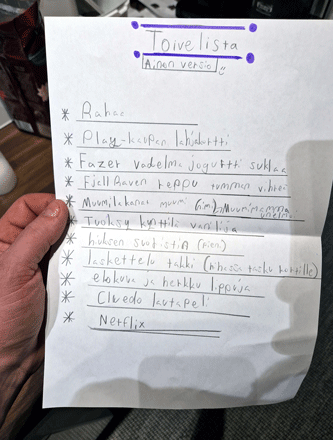 Toivelista
Ainon versio
* Rahaa
* Play-kaupan lahjakortti
* Fazer vadelma jogurtti suklaa
* FjellRaven reppu tumman vihreä
* Muumilakanat muumi (nim.
* Tuoksu kynttilä vanilija
* huksen suoristin (pieni)
* laskettelu takki (hihassa tasku kortille)
* elokuva ja herkku lippuja
* Cluedo lautapeli
* Netflix